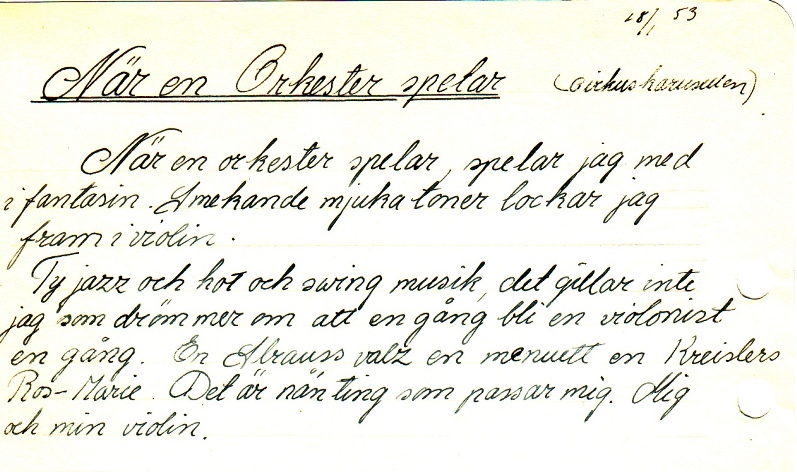 18/1 53
När en Orkester spelar (Cirkuskarusellen)
När en orkester spelar, spelar jag med
i fantasin. Smekande mjuka toner lockar jag
fram i violin.
Ty jazz och hot och swing musik, det gillar inte
jag som drömmer om att en gång bli en violonist
en gång. En Strauss valz en menuett en Kreislers
Ros-Marie. Det är nån ting som passar mig. Mig
och min violin.